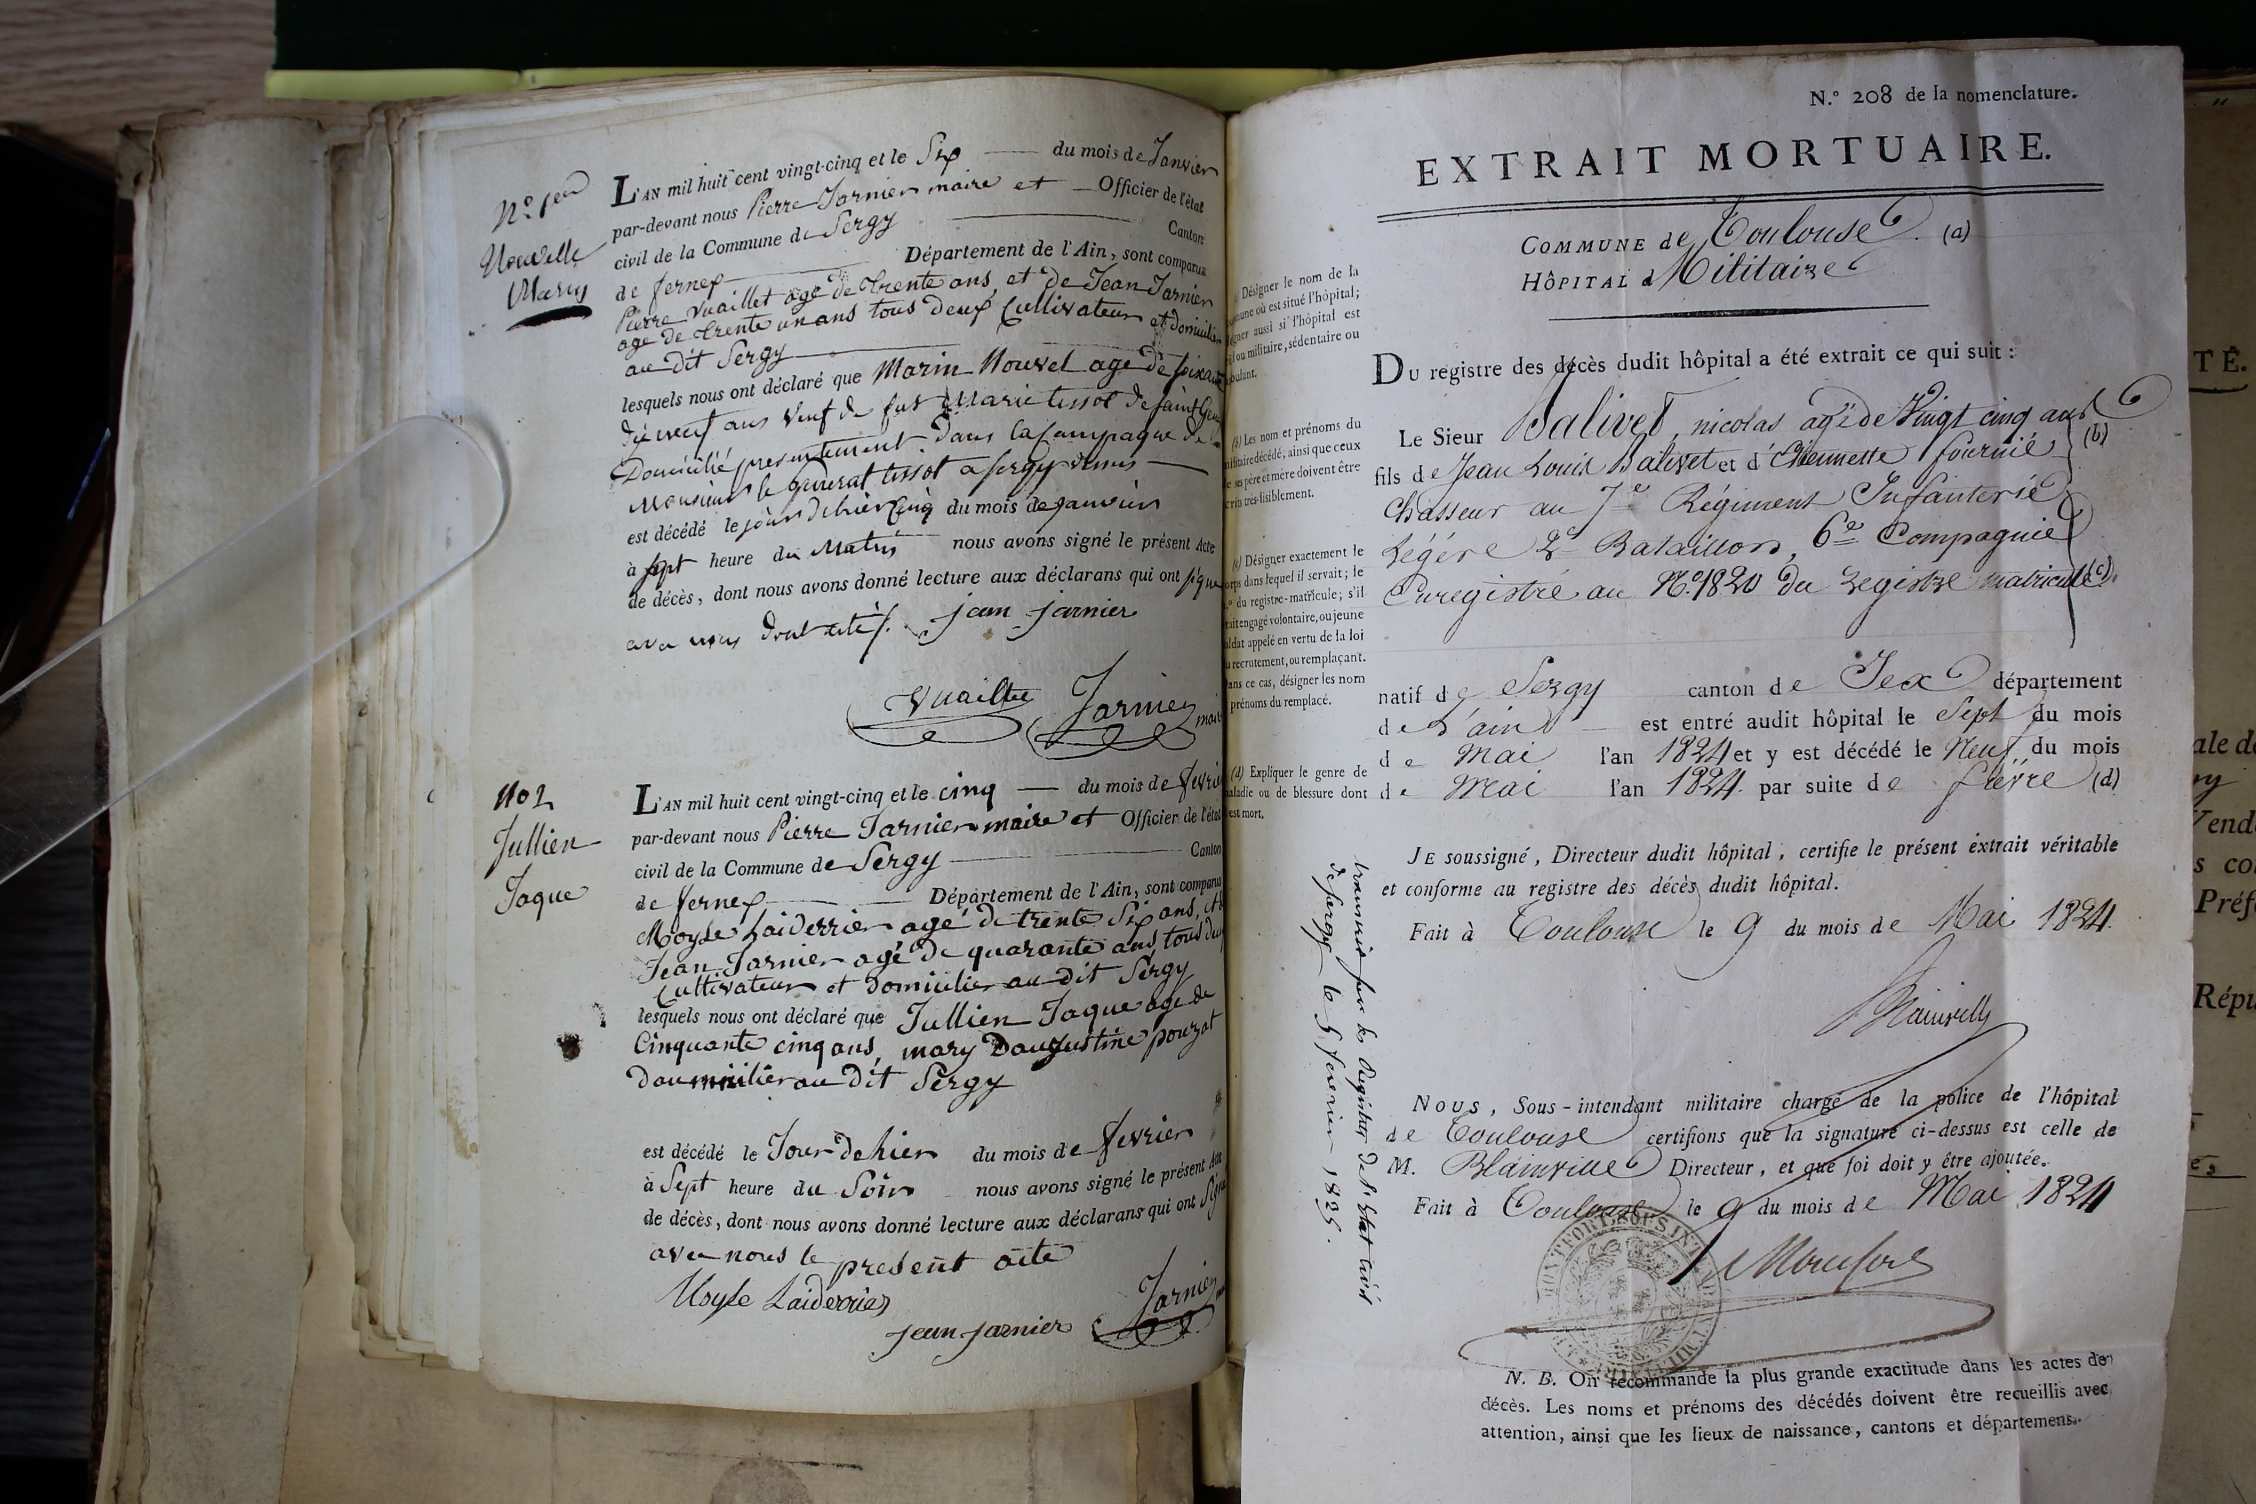 N.o 1er
Nouvelle
Marin
L'AN mil huit cent vingt-cinq et le Six du mois de Janvier
par-devant nous Pierre Jarnier maire et Officier de l'état
civil de la Commune de Sergy Canton
de fernex Département de l'Ain, sont comparus
Pierre Vuaillet agé de trente ans, et de Jean Jarnier
age de trente un ans tous deux Cultivateur et domicilier
au dit Sergy
lesquels nous ont déclaré que Marin Nouvel age de soixante
dix neuf ans veuf de fut Marie tissot de saint
Domicilié presentement dans la Campagne de
Monsieur le general tissot a sergy
est décédé le jour d'hier Cinq du mois de janvier
à sept heure du Matin nous avons signé le présent Acte
de décès, dont nous avons donné lecture aux déclarans qui ont signé
avec nous dont acte. jean jarnier
Vuaillet Jarnier maire
No 2
Jullien
Jaque
L'AN mil huit cent vingt-cinq et le cinq du mois de fevrier
par-devant nous Pierre Jarnier maire et Officier de l'état
civil de la Commune de Sergy Canton
de fernex Département de l'Ain, sont comparus
Moyse Laiderrier agé de trente Six ans, et
Jean Jarnier agé de quarante ans, tous deux
Cultivateur et domicilier au dit Sergy
lesquels nous ont déclaré que Jullien Jaque age de
Cinquante cinq ans, mary Daugustine pouzat
doumicilier au dit Sergy
est décédé le Jour de hier du mois de fevrier
à Sept heure du Soir nous avons signé le présent Acte
de décès, dont nous avons donné lecture aux déclarans qui ont Signé
avec nous le present acte
Moyse Laiderrier
jean jarnier Jarnier
N.º 208 de la nomenclature.
EXTRAIT MORTUAIRE.
COMMUNE de Toulouse (a)
HÔPITAL d Militaire
Désigner le nom de la
commune où est situé l'hôpital;
désigner aussi si l'hôpital est
civil ou militaire, sédentaire ou
ambulant.
DU registre des décès dudit hôpital a été extrait ce qui suit :
(b) Les nom et prénoms du
militaire décédé, ainsi que ceux
de ses père et mère doivent être
écrits très-lisiblement.
Le Sieur Balivet, nicolas agé de Vingt cinq ans
fils de Jean Louis Balivet et d'Etiennette fournié (b)
Chasseur au 7e Régiment Infanterie
Légére 2e Bataillon, 6e Compagnie
Enregistré au N.o 1820 du registre matricule (c).
(c) Désigner exactement le
corps dans lequel il servait; le
n.º du registre-matricule; s'il
était engagé volontaire, ou jeune
soldat appelé en vertu de la loi
du recrutement, ou remplaçant.
Dans ce cas, désigner les nom
et prénoms du remplacé.
natif de Sergy canton de Jex département
de L'ain est entré audit hôpital le Sept du mois
de Mai l'an 1824 et y est décédé le Neuf du mois
de Mai l'an 1824 par suite de fiévre (d)
(d) Expliquer le genre de
maladie ou de blessure dont
il est mort.
JE soussigné, Directeur dudit hôpital, certifie le présent extrait véritable
et conforme au registre des décès dudit hôpital.
Fait à Toulouse le 9 du mois de Mai 1824.
Blainville
transmis sur les Registres de l'Etat civil
de sergy le 5 fevrier 1825.
NOUS, Sous-intendant militaire chargé de la police de l'hôpital
de Toulouse certifions que la signature ci-dessus est celle de
M. Blainville Directeur, et que foi doit y être ajoutée.
Fait à Toulouse le 9 du mois de Mai 1824
Montfort
MONTFORT, SOUS INTENDANT MILITAIRE
N. B. On recommande la plus grande exactitude dans les actes de
décès. Les noms et prénoms des décédés doivent être recueillis avec
attention, ainsi que les lieux de naissance, cantons et départemens.